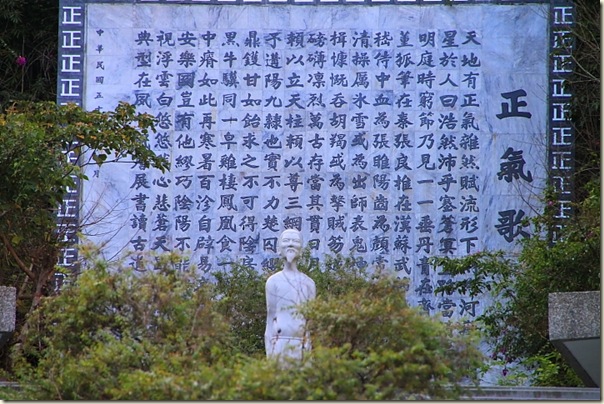 正氣歌
天地有正氣雜然賦流形下河
星於人曰浩然沛乎塞蒼冥當
明庭時窮節乃見一一垂丹青在齊
董狐筆在秦張良椎在漢蘇武
嵇侍中血為張睢陽齒為顏常
清操厲冰雪或為出師表鬼
楫慷慨吞胡羯或為擊賊笏
磅礴凜烈萬古存當其貫日月
賴以立天柱賴以尊三綱
予遘陽九隸也實不力楚囚纓
鼎鑊甘如飴求之不可得陰房
黑牛驥同一皁雞棲鳳凰食一
中瘠如此再寒暑百沴自辟易
安樂國豈有他繆巧陰陽不
視浮雲白悠悠心悲蒼天
典型在夙展書讀古道
中華民國五十月